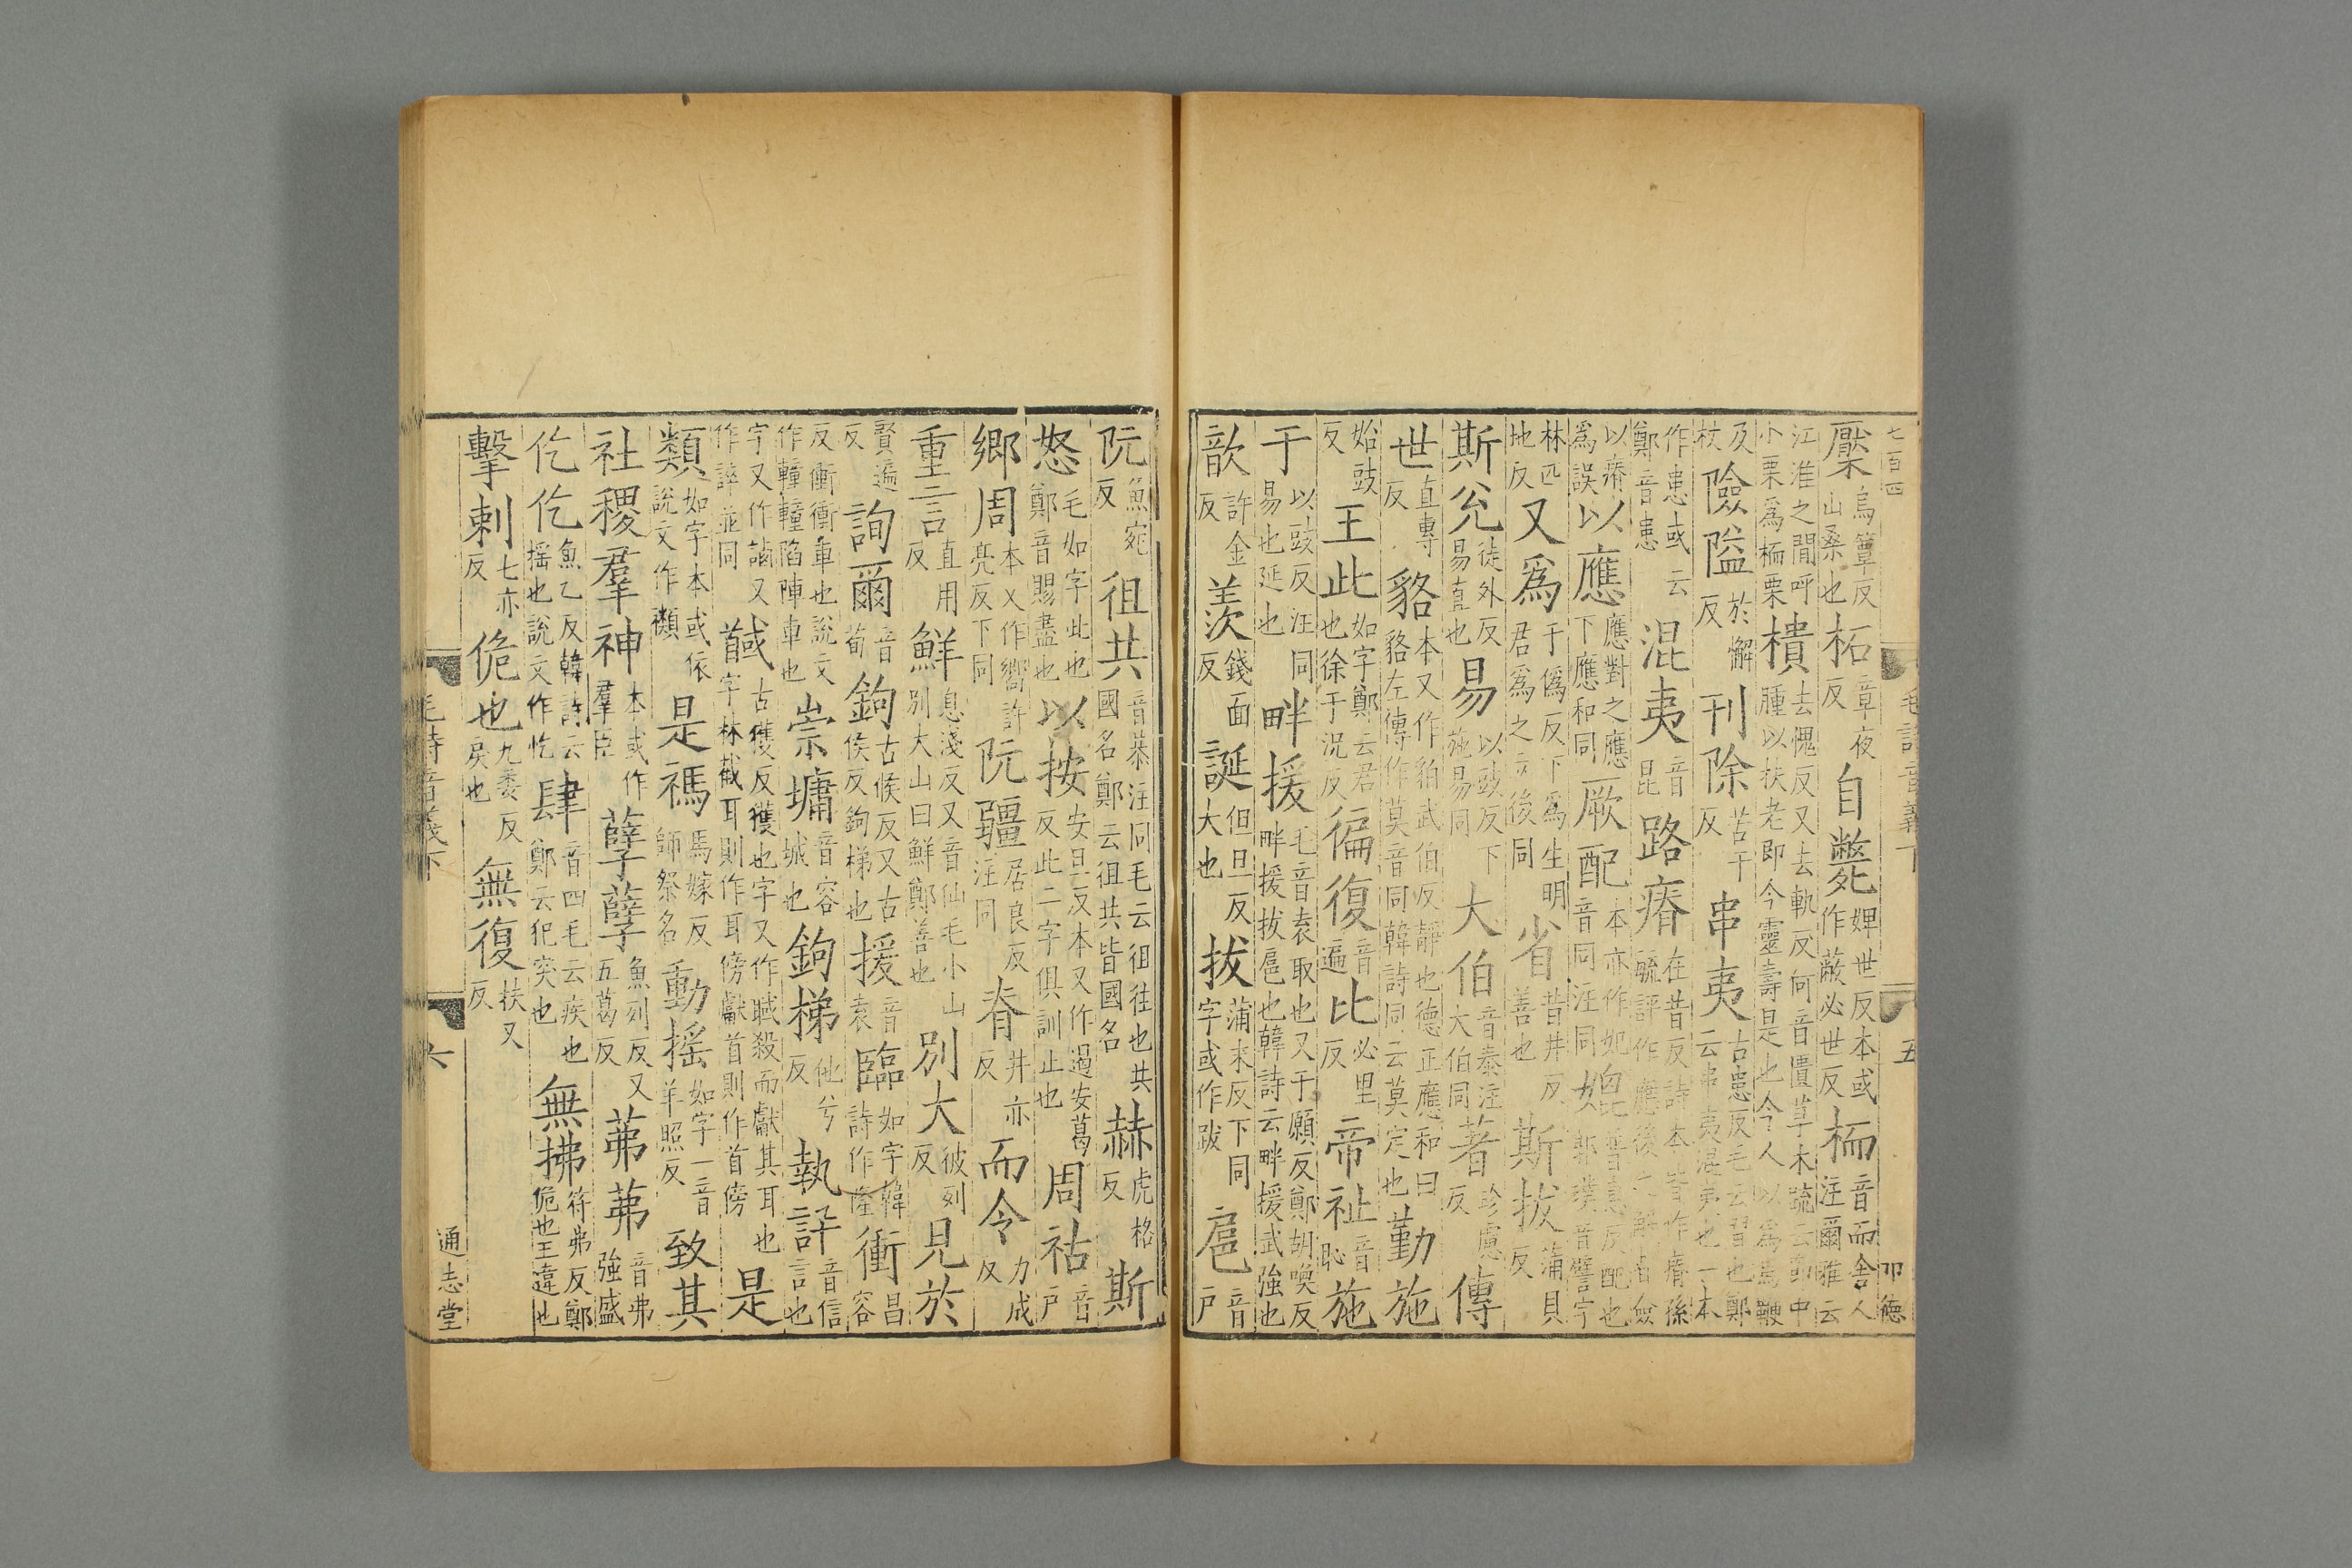 七百四 毛詩音義下 五 叩德
檿烏簟反山桑也柘章夜反自斃婢世反本或作蔽必世反栭音而舍人注爾雅云
江淮之間呼小栗為栭栗樻去愧反又去軌反何音匱草木疏云節中腫以扶老即今靈壽是也今人以為馬鞭
及杖險隘於懈反刊除苦干反串夷古患反毛云習也鄭云串夷混夷也一本
作患或云鄭音患混夷音昆路瘠在昔反詩本皆作瘠孫毓評作應後之解者僉
以瘠為誤以應應對之應下應和同厥配本亦作妃音同注同媲普惠反配也
林匹地反又為于偽反下為生明君為之云後同省昔井反善也斯拔蒲貝反
斯兌徒外反易直也易以豉反下施易同大伯音泰注大伯同著珍慮反傳
世直專反貉本又作貊武伯反靜也德正應和曰貉左傳作莫音同韓詩同云莫定也勤施
始豉反王此如字鄭云君也徐于況反徧復音遍比必里反帝祉音恥施
于以豉反注同易也延也畔援毛音袁取也又于願反鄭胡喚反畔援拔扈也韓詩云畔援武強也
歆許金反羨錢面反誕但旦反大也拔蒲末反下同字或作跋扈音戶
阮魚宛反徂共音恭注同毛云徂往也共國名鄭云徂共皆國名赫虎格反斯
怒毛如字此也鄭音賜盡也以按安旦反本又作遏安葛反此二字俱訓止也周祜音戶
鄉周本又作嚮許亮反下同阮疆居良反注同脊井亦反而令力成反
重言直用反鮮息淺反又音仙毛小山別大山曰鮮鄭善也別大彼列反見於
賢遍反詢爾音荀鉤古侯反又古侯反鉤梯也援音袁臨如字韓詩作隆衝昌容
反衝衝車也說文作䡴䡴陷陣車也崇墉音容城也鉤梯他兮反執訊音信言也
字又作誶又作訙並同馘古獲反獲也字又作聝殺而獻其耳也字林截耳則作耳傍獻首則作首傍是
類如字本或依說文作禷是禡馬嫁反師祭名動搖如字一音羊照反致其
社稷羣神本或作羣臣孽孽魚列反又五葛反茀茀音弗強盛
仡仡魚乙反韓詩云搖也說文作忔肆音四毛云疾也鄭云犯突也無拂符弗反鄭佹也王違也
擊刺七亦反佹也九委反戾也無復扶又反
毛詩音義下 六 通志堂